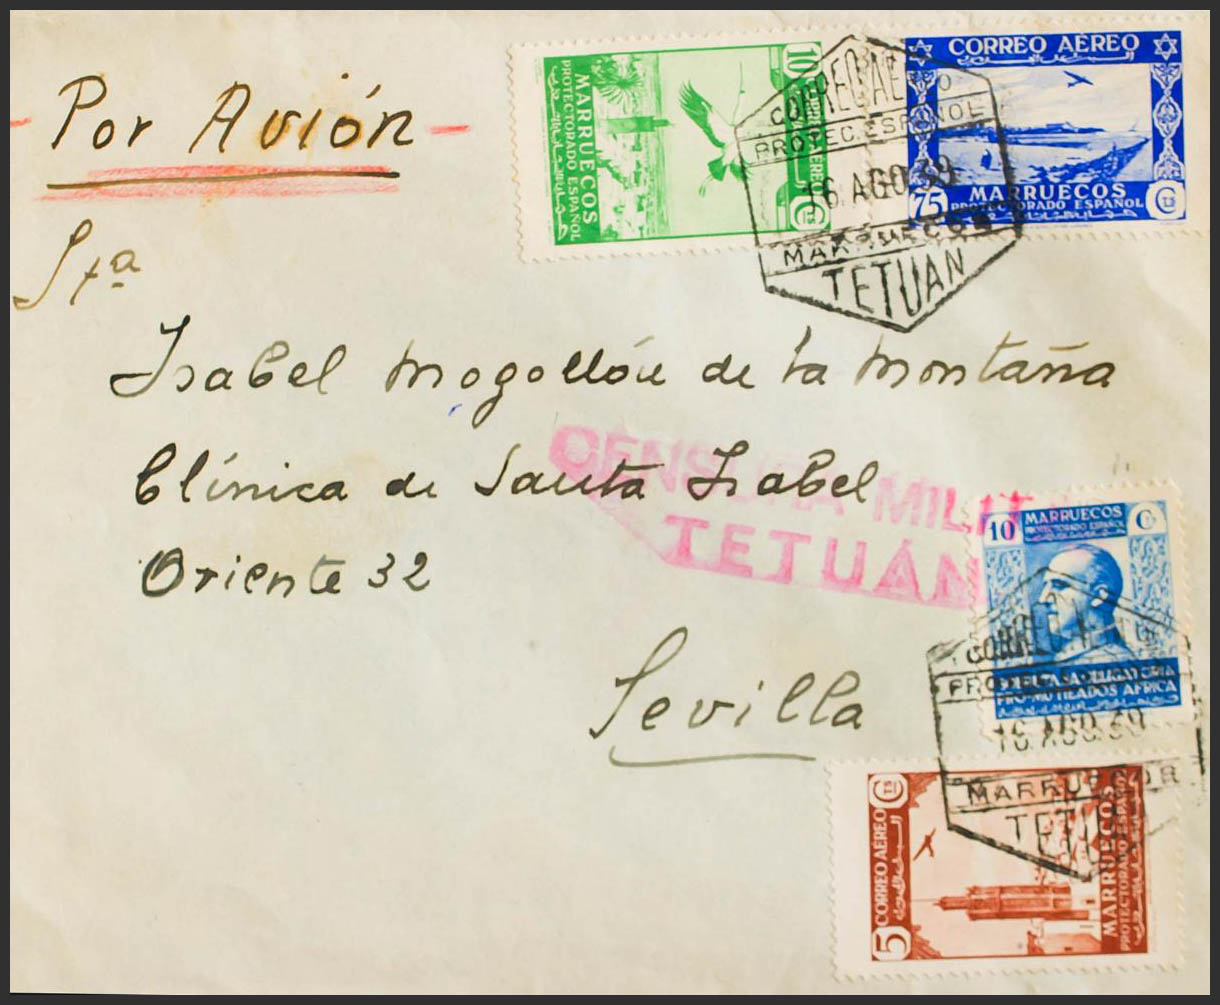 Por Avión
Sta
Isabel Mogollón de la Montaña
Clínica de Santa Isabel
Oriente 32
Sevilla
10 Cts
CORREO AÉREO
MARRUECOS
PROTECTORADO ESPAÑOL
CORREO AÉREO
MARRUECOS
PROTECTORADO ESPAÑOL
75 Cts
CORREO AEREO
PROTEC. ESPAÑOL
16 AGO 39
MARRUECOS
TETUAN
CENSURA MILIT
TETUÁN
MARRUECOS
PROTECTORADO ESPAÑOL
10 Cs
PRO-MUTILADOS AFRICA
CORREO
16 AGO 39
MARRUECOS
5 Cts
CORREO AÉREO
MARRUECOS
PROTECTORADO ESPAÑOL